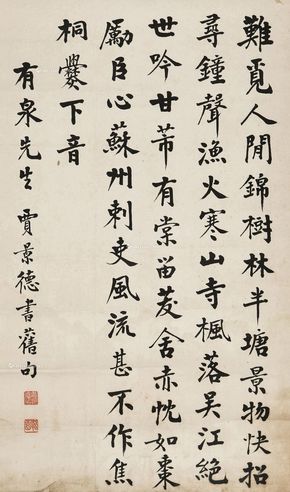 難覓人閒錦樹林半塘景物快招
尋鐘聲漁火寒山寺楓落吳江絕
世吟甘芾有棠留茇舍赤忱如棗
勵臣心蘇州刺史風流甚不作焦
桐爨下音
有泉先生 賈景德書舊句